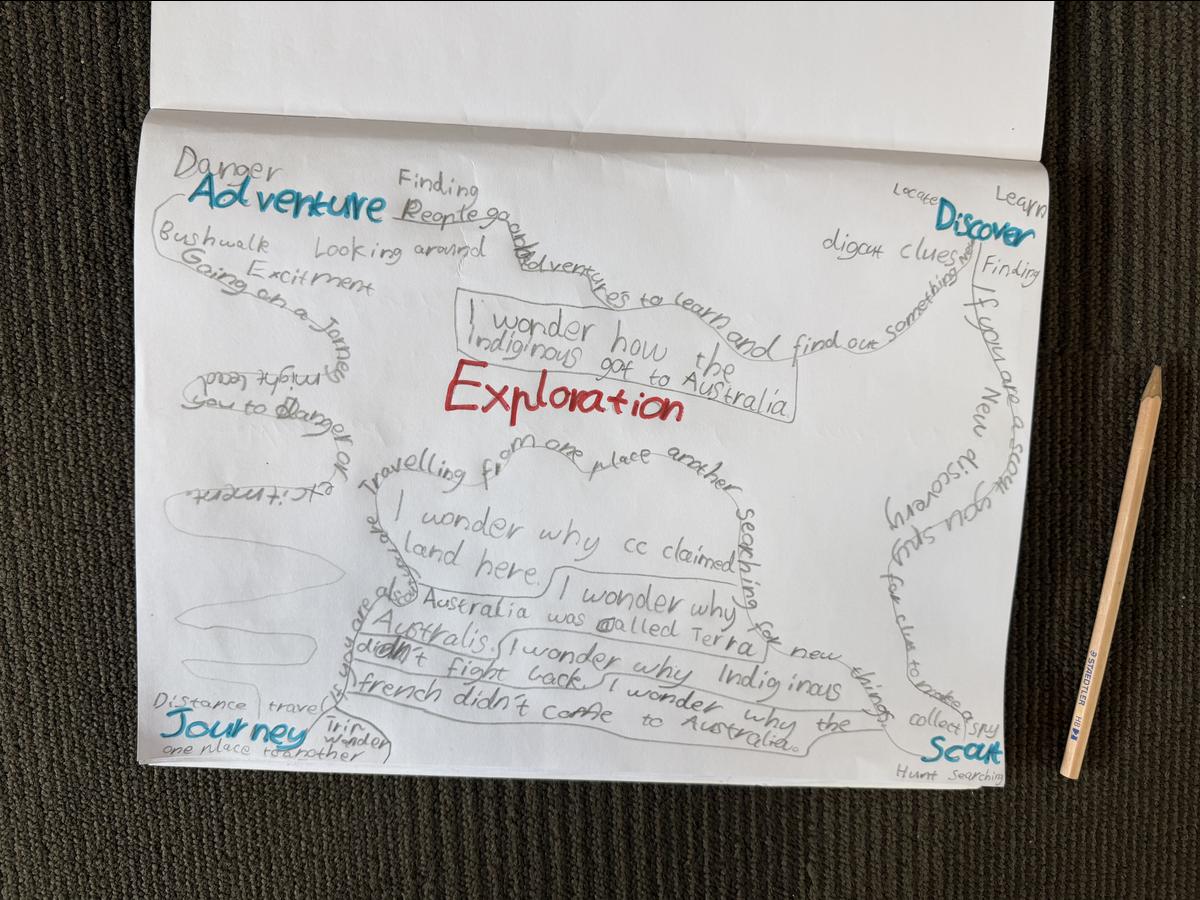 Danger
Adventure
Finding
People go on
Adventures to learn and find out something new
Bushwalk Looking around
Excitment
Going on a Jorney
might lead
you to danger or
excitment
Locate
Learn
Discover
digout clues
Finding
If you are a scout you spy for clues to make a
New discovery
I wonder how the
Indiginous got to Australia
Exploration
Travelling from one place another searching for new things
I wonder why cc claimed
land here.
I wonder why
Australia was called Terra
Australis.
I wonder why Indiginous
didn't fight back.
I wonder why the
french didn't come to Australia.
Distance travel
Journey
Trip
Wonder
one place to another
collect spy
Scout
Hunt Searching
STAEDTLER HB